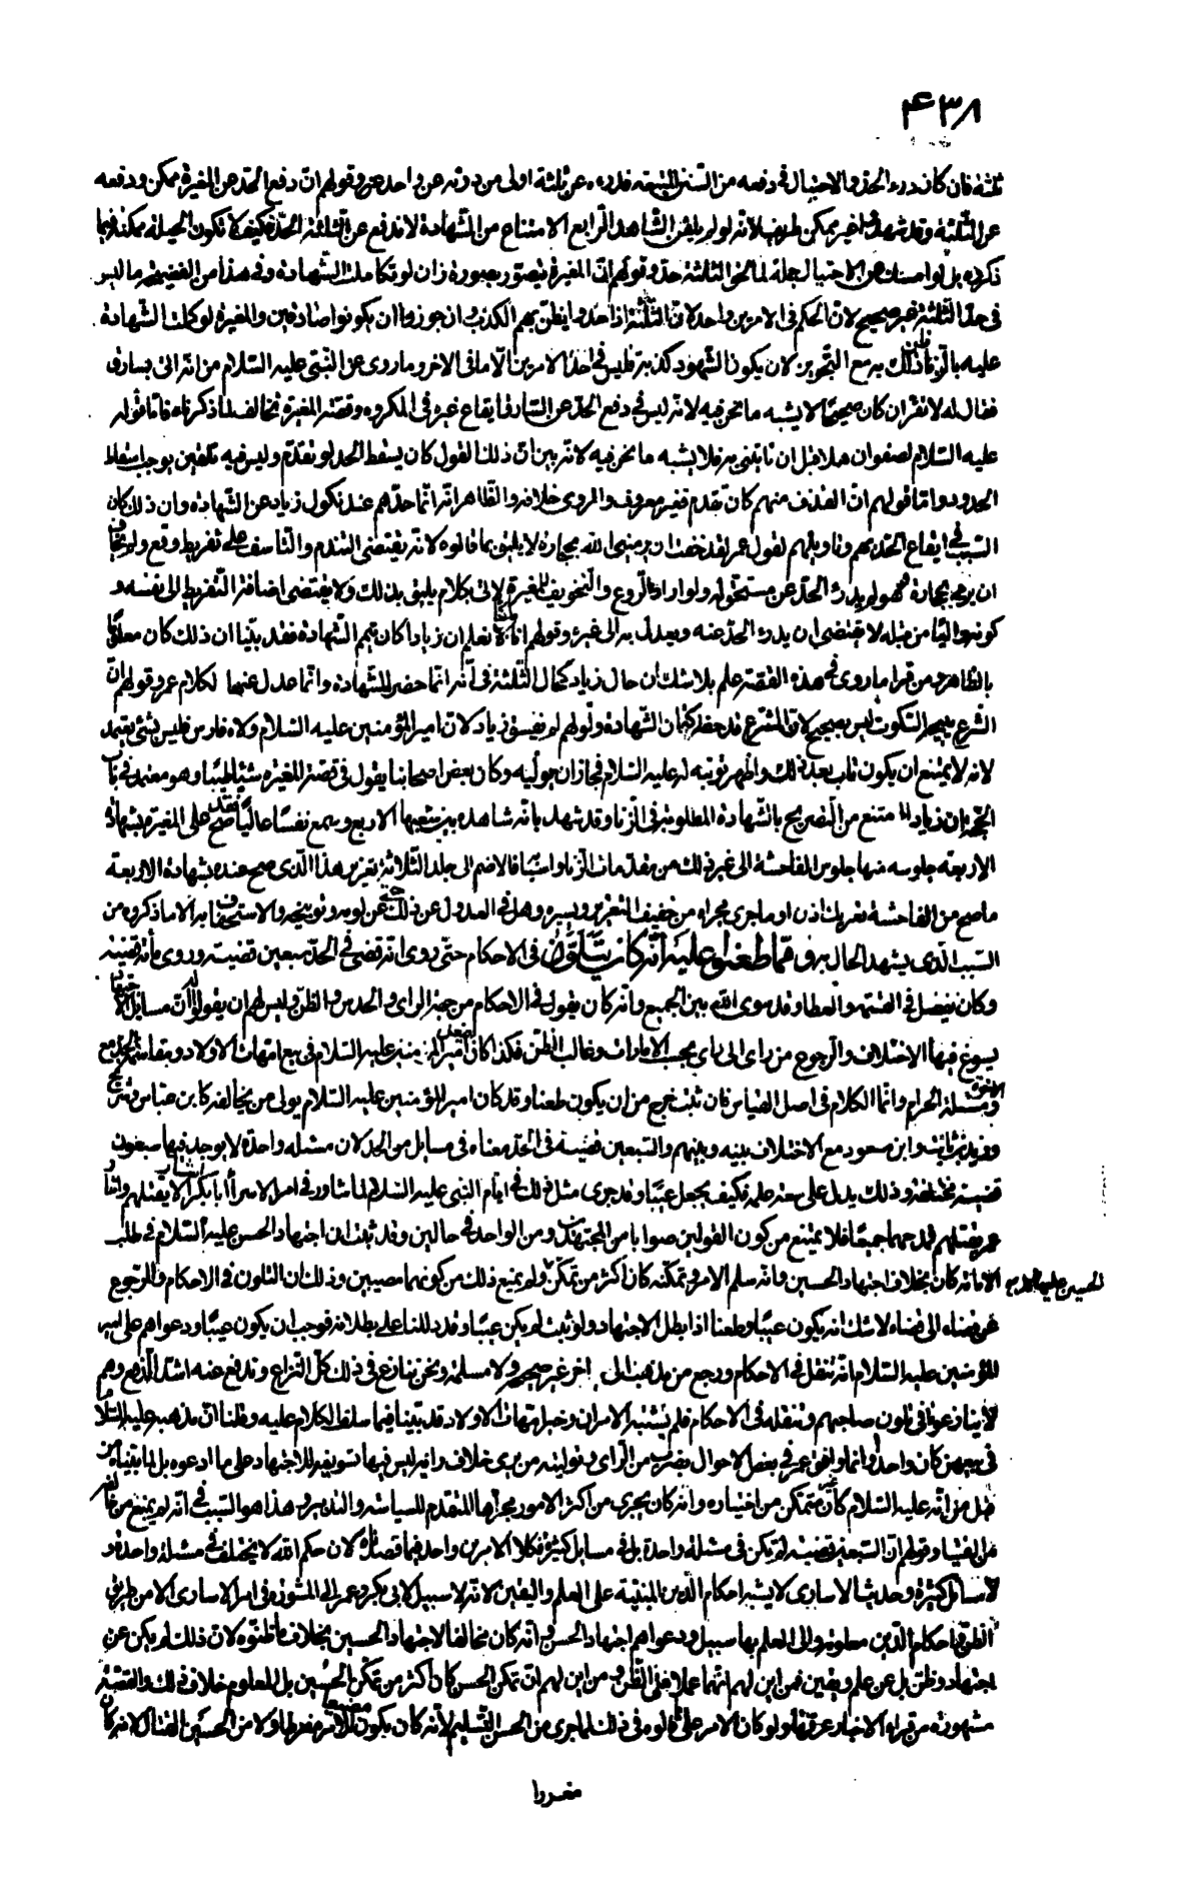 ۴۳۸
ثلثة فان كان درء الحد والاحتيال في دفعه من السنن المتبعة فدرءه عن ثلثة اولى من درئه عن واحد وقولهم ان دفع الحد عن المغيرة ممكن ودفعه
عن الثلثة وقد شهدوا غير ممكن طريف لانه لو لم يلقن الشاهد الرابع الامتناع من الشهادة لاندفع عن الثلثة الحد فكيف لا تكون الحيلة ممكنة فيما
ذكروه بل لو امسك عن الاحتيال جملة لما لحق الثلثة حد وقولهم ان المغيرة يتصور بصورة زان لو تكاملت الشهادة وفي هذا من الفضيحة ما ليس
في حد الثلثة غير صحيح لان الحكم في الامرين واحد لان الثلثة اذا حدوا يظن بهم الكذب وان جوز ان يكونوا صادقين والمغيرة لو كملت الشهادة
عليه بالزنا ظن ذلك به مع التجويز لان يكون الشهود كذبة فليس في احد الامرين الا ما في الاخر وما روي عن النبي عليه السلام من انه اتي بسارق
فقال له لا تقر ان كان صحيحا لا يشبه ما نحن فيه لانه ليس في دفع الحد عن السارق ايقاع غيره في المكروه وقصة المغيرة تخالف لما ذكرناه فاما قوله
عليه السلام لصفوان هلا قبل ان تاتيني به فلا يشبه ما نحن فيه لانه بين ان ذلك القول كان يسقط الحد لو تقدم وليس فيه تلقين يوجب اسقاط
الحدود واما قولهم ان القذف منهم كان تقدم فغير معروف والمروي خلافه والظاهر انه انما حدهم عند نكول زياد عن الشهادة وان ذلك كان
السبب في ايقاع الحد بهم وتاويلهم لقول عمر لقد خفت ان يرميني الله بحجارة لا يليق بما قالوه لانه يقتضي التندم والتاسف على تفريط وقع ولم يخاف
ان يرمي بحجارة وهو لم يدرء الحد عن مستحق له ولو اراد الردع والتخويف للمغيرة لاتى بكلام يليق بذلك ولا يقتضي اضافة التفريط الى نفسه و
كونه واليا من قبله لا يقتضي ان يدرء الحد عنه ويعدل به الى غيره وقولهم انا ما كنا نعلم ان زيادا كان يتمم الشهادة فقد بينا ان ذلك كان معلوما
بالظاهر ومن قرا ما روي في هذه القصة علم بلا شك ان حال زياد كحال الثلثة في انه انما حضر للشهادة وانما عدل عنها لكلام عمر وقولهم ان
الشرع يبيح السكوت ليس بصحيح لان الشرع قد حظر كتمان الشهادة وقولهم لم يفسق زياد لان امير المؤمنين عليه السلام ولاه فارس فليس بشئ يعتمد
لانه لا يمتنع ان يكون تاب بعد ذلك واظهر توبته له عليه السلام فجاز ان يوليه وكان بعض اصحابنا يقول في قصة المغيرة شيئا طيبا وهو معتمد في باب
الحجة ان زيادا انما امتنع من التصريح بالشهادة المطلوبة في الزنا وقد شهد بانه شاهده بين شعبها الاربع وسمع نفسا عاليا فقد صح على المغيرة بشهادة
الاربعة جلوسه منها مجلس الفاحشة الى غير ذلك من مقدمات الزنا واسبابها فالا ضم الى جلد الثلاثة تعزير هذا الذي صح عنده بشهادة الاربعة
ما صح من الفاحشة تعريك اذن او ما جرى مجراه من خفيف التعزير ويسيره وهل في العدول عن ذلك حتى عن لومه وتوبيخه والاستخفاف به الا ما ذكروه من
السبب الذي يشهد الحال به ومما طعنوا عليه انه كان يتلون في الاحكام حتى روي انه قضى في الحد سبعين قضية وروي مائة قضية
وكان يفضل في القسمة والعطا وقد سوى الله بين الجميع وانه كان يقول في الاحكام من جهة الراي والحدس والظن وليس لهم ان يقولوا ان مسائل الاجتهاد
يسوغ فيها الاختلاف والرجوع من راي الى راي بحسب الامارات وغالب الظن فكذا كان امير المؤمنين عليه السلام في بيع امهات الاولاد ومقاسمة الجد مع
الاخوة ومسئلة الحرام وانما الكلام في اصل القياس فان ثبت خرج من ان يكون طعنا وقد كان امير المؤمنين عليه السلام يولي من يخالفه كابن عباس وشريح
وزيد بن ثابت وابن مسعود مع الاختلاف بينه وبينهم والسبعين قضية في الحد معناه في مسايل من الجد لان مسئلة واحدة لا يوجد فيها سبعون
قضية مختلفة وذلك يدل على سعة علمه فكيف يجعل عيبا وقد جرى مثل ذلك في ايام النبي عليه السلام لما شاور في امر الاسرا اشار ابا بكر الا يقتلهم واشار
عمر بقتلهم فمدحهما جميعا فلا يمتنع من كون القولين صوابا من المجتهدين ومن الواحد في حالين وقد ثبت ان اجتهاد الحسن عليه السلام في طلب
الامامة كان بخلاف اجتهاد الحسين وانه سلم الامر وتمكنه كان اكثر من تمكن الحسين عليه السلام ولم يمنع ذلك من كونهما مصيبين وذلك ان التلون في الاحكام والرجوع
من قضاء الى قضاء لا شك انه يكون عيبا وطعنا اذا بطل الاجتهاد ولو ثبت لم يكن عيبا وقد دللنا على بطلانه فوجب ان يكون عيبا ودعواهم على امير
المؤمنين عليه السلام انه تنقل في الاحكام ورجع من مذهب الى اخر غير صحيح ولا مسلمة ونحن ننازع في ذلك كل النزاع وندفع عنه اشد الدفع وهم
لا ينازعونا في تلون صاحبهم وتنقله في الاحكام فلم يشتبه الامران وخبر امهات الاولاد قد بينا فيما سلف الكلام عليه وقلنا ان مذهبه عليه السلام
في بيعهن كان واحدا وانما وافق عمر في بعض الاحوال بضرب من الراي وتوليته من يرى خلاف رايه ليس فيها تسويغ للاجتهاد على ما ادعوه بل لما بيناه من
قبل من انه عليه السلام كان غير متمكن من اختياره وانه كان يجري من اكثر الامور مجراها المتقدم للسياسة والتدبير وهذا هو السبب في انه لم يمنع من خالفه
من الفتيا وقولهم ان السبعين قضية لم يكن في مسئلة واحدة بل في مسايل كثيرة فكلا الامرين واحد فيما قصدناه لان حكم الله لا يختلف في مسئلة واحدة و
لا مسائل كثيرة وحديث الاسارى لا يشبه احكام الدين المبنية على العلم واليقين لانه لا سبيل لابي بكر وعمر الى المشورة في امر الاسارى الا من طريق
الظن واحكام الدين معلومة والى العلم بها سبيل ودعواهم اجتهاد الحسن وانه كان مخالفا لاجتهاد الحسين بخلاف ما ظنوه لان ذلك لم يكن عن
اجتهاد وظن بل عن علم ويقين فمن اين لهم انهما عملا على الظن ومن اين لهم ان تمكن الحسن كان اكثر من تمكن الحسين بل المعلوم خلاف ذلك والقصة
مشهورة من قراء الاخبار عرفها ولو كان الامر على ما قالوه في ذلك لما جرى من الحسن التسليم لانه كان يكون مضيعا للامر مفرطا ولا من الحسين القتال لانه كان
مغررا